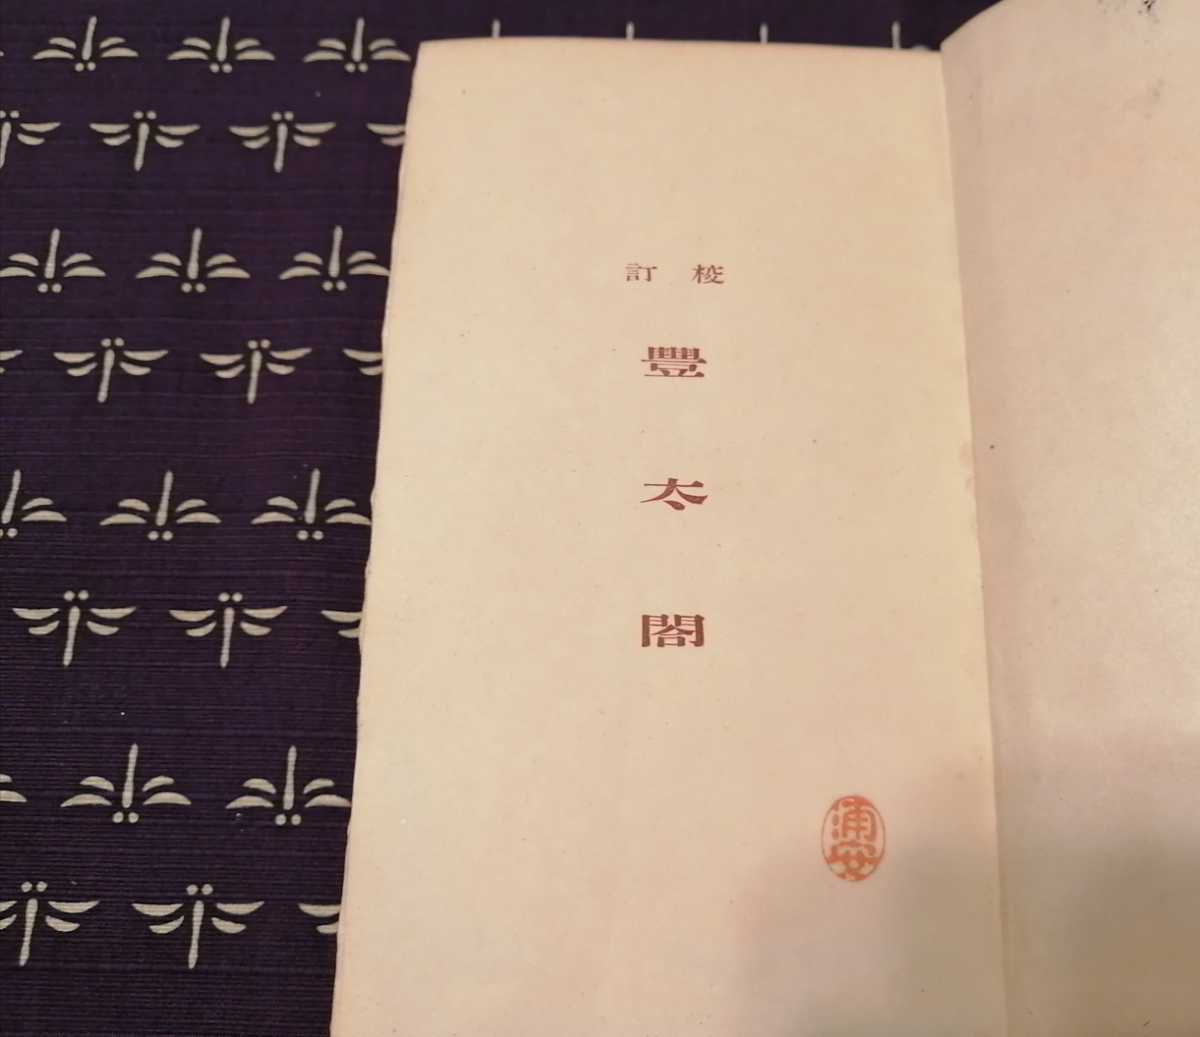 校訂
豐太閤
浦安